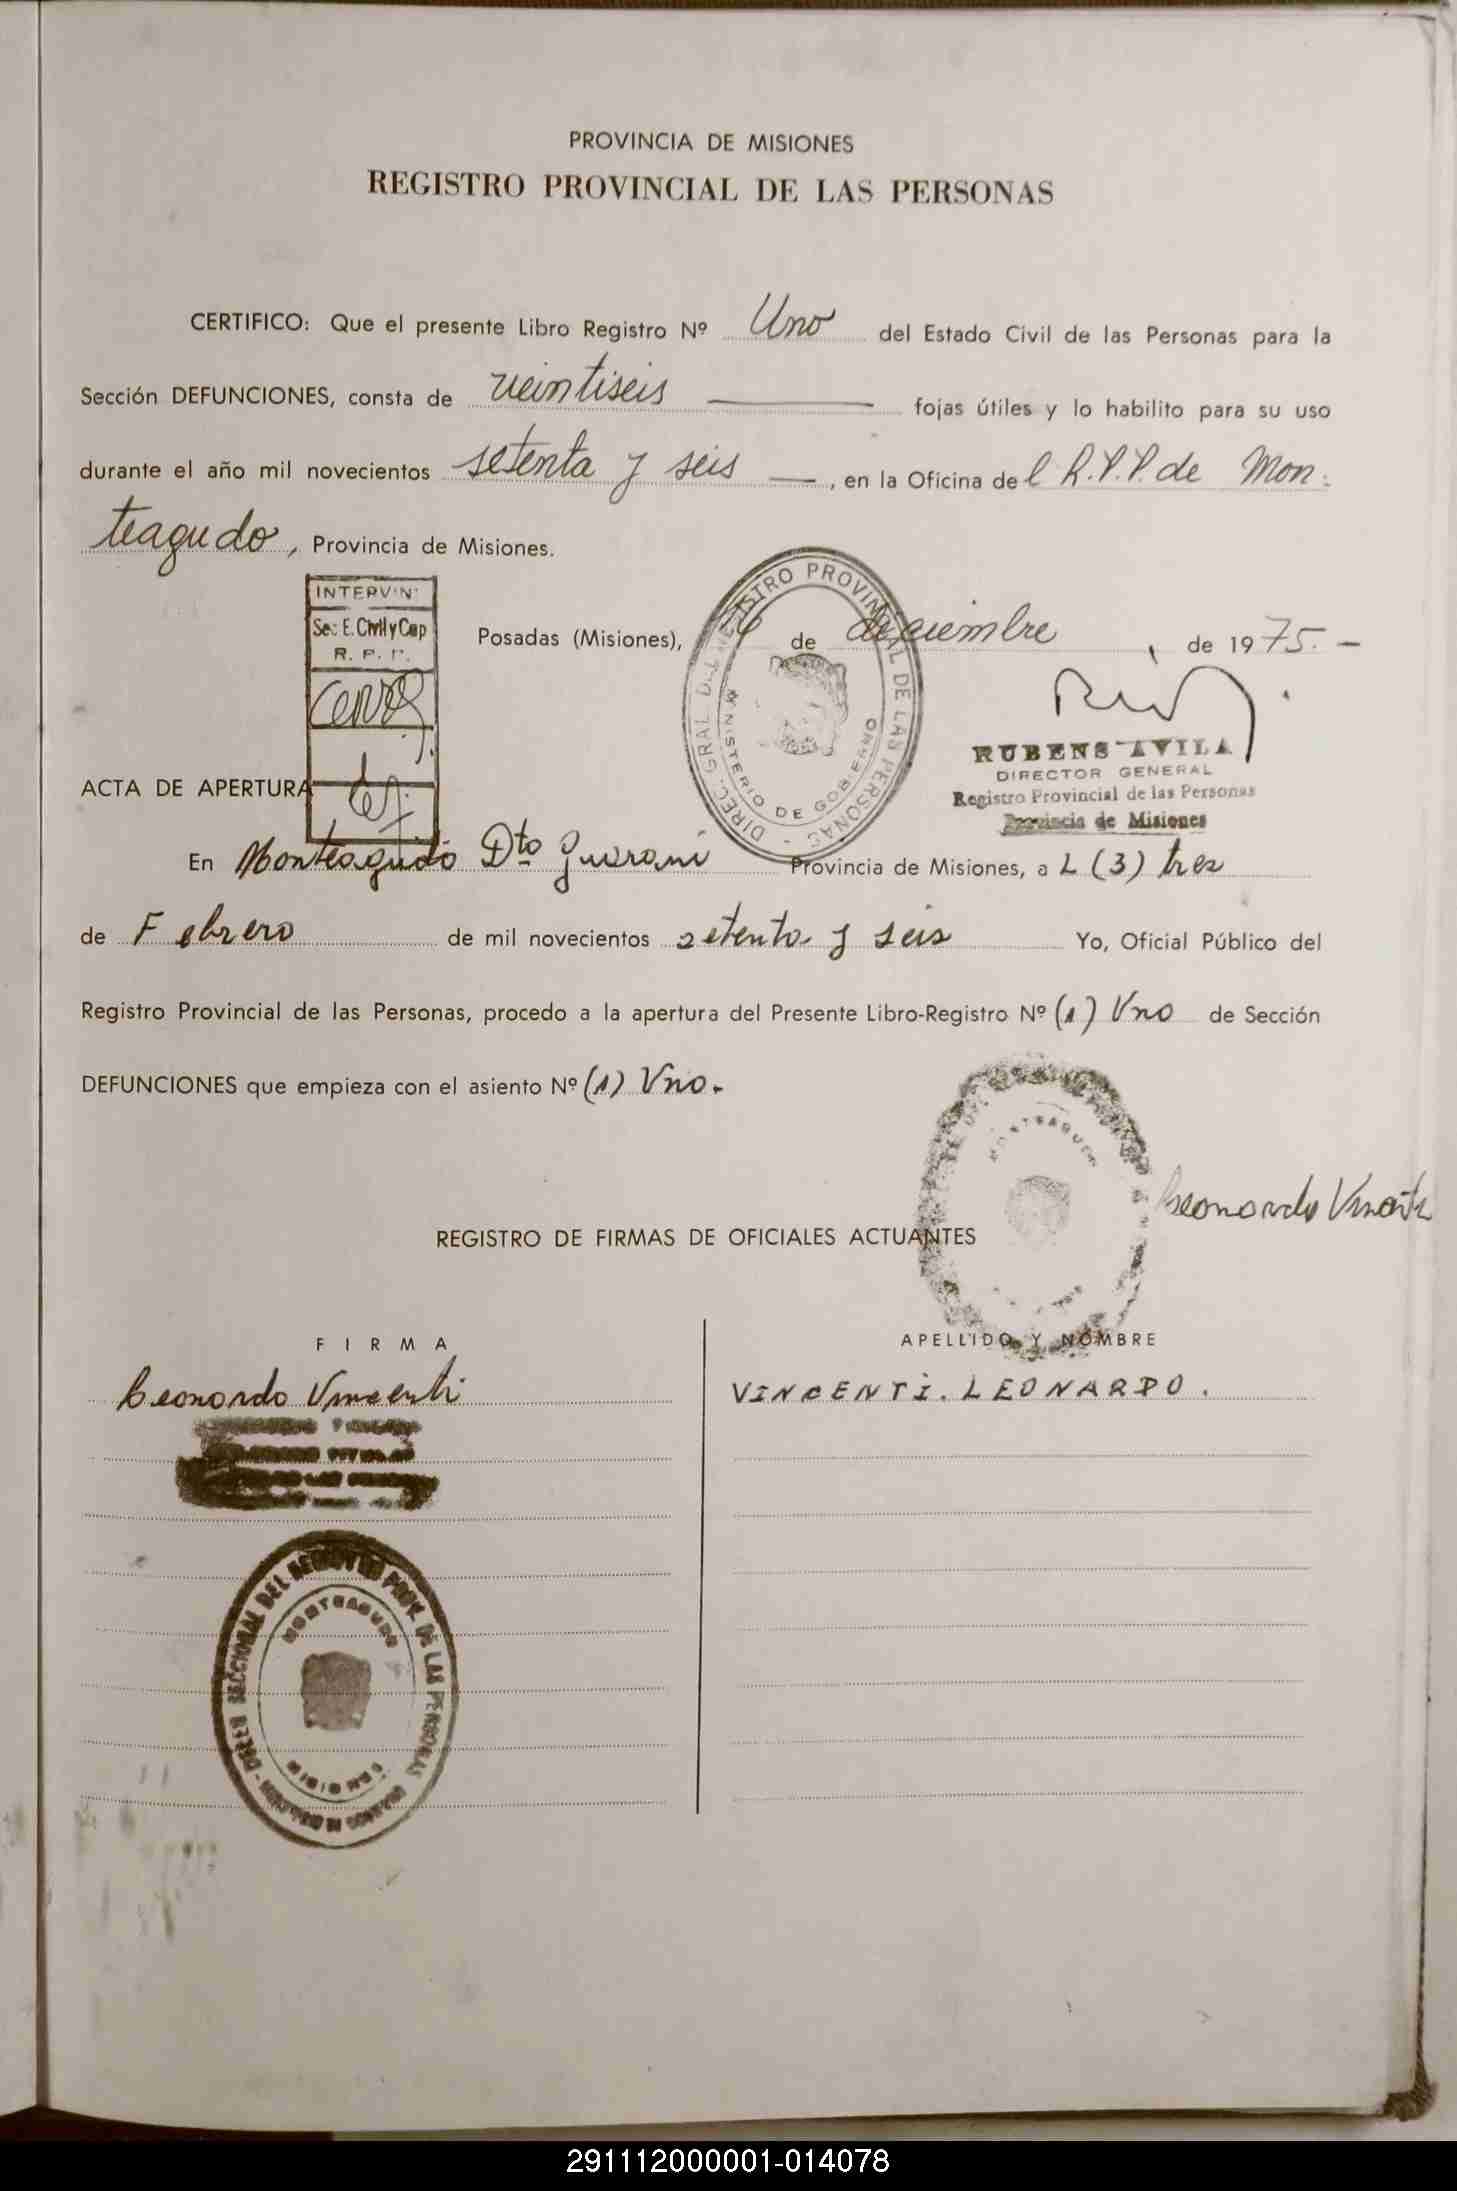 PROVINCIA DE MISIONES
REGISTRO PROVINCIAL DE LAS PERSONAS
CERTIFICO: Que el presente Libro Registro Nº Uno del Estado Civil de las Personas para la
Sección DEFUNCIONES, consta de veintiseis fojas útiles y lo habilito para su uso
durante el año mil novecientos setenta y seis —, en la Oficina del R.P.P. de Mon-
teagudo, Provincia de Misiones.
INTERVIN
Sec. E. Civil y Cap
R. P. P.
Posadas (Misiones), 16 de diciembre de 1975.-
DIREC. GRAL. DEL REGISTRO PROVINCIAL DE LAS PERSONAS -
MINISTERIO DE GOBIERNO
RUBENS AVILA
DIRECTOR GENERAL
Registro Provincial de las Personas
Provincia de Misiones
ACTA DE APERTURA
En Monteagudo Dto Guarani Provincia de Misiones, a L (3) tres
de Febrero de mil novecientos setenta y seis Yo, Oficial Público del
Registro Provincial de las Personas, procedo a la apertura del Presente Libro-Registro Nº (1) Uno de Sección
DEFUNCIONES que empieza con el asiento Nº (1) Uno.
MONTEAGUDO
Leonardo Vincenti
REGISTRO DE FIRMAS DE OFICIALES ACTUANTES
FIRMA
APELLIDO Y NOMBRE
Leonardo Vincenti
VINCENTI. LEONARDO.
SECCIONAL DEL REGISTRO PROV. DE LAS PERSONAS
MONTEAGUDO
MISIONES
291112000001-014078